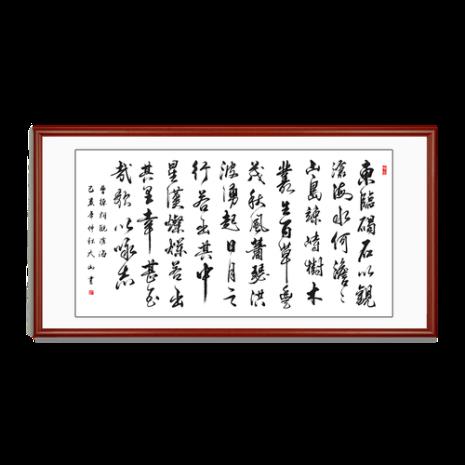 東臨碣石以觀
滄海水何澹〻
山島竦峙樹木
叢生百草豐
茂秋風蕭瑟洪
波湧起日月之
行若出其中
星漢燦爛若出
其里幸甚至
哉歌以咏志
曹操詩觀滄海
己亥春仲社大山書